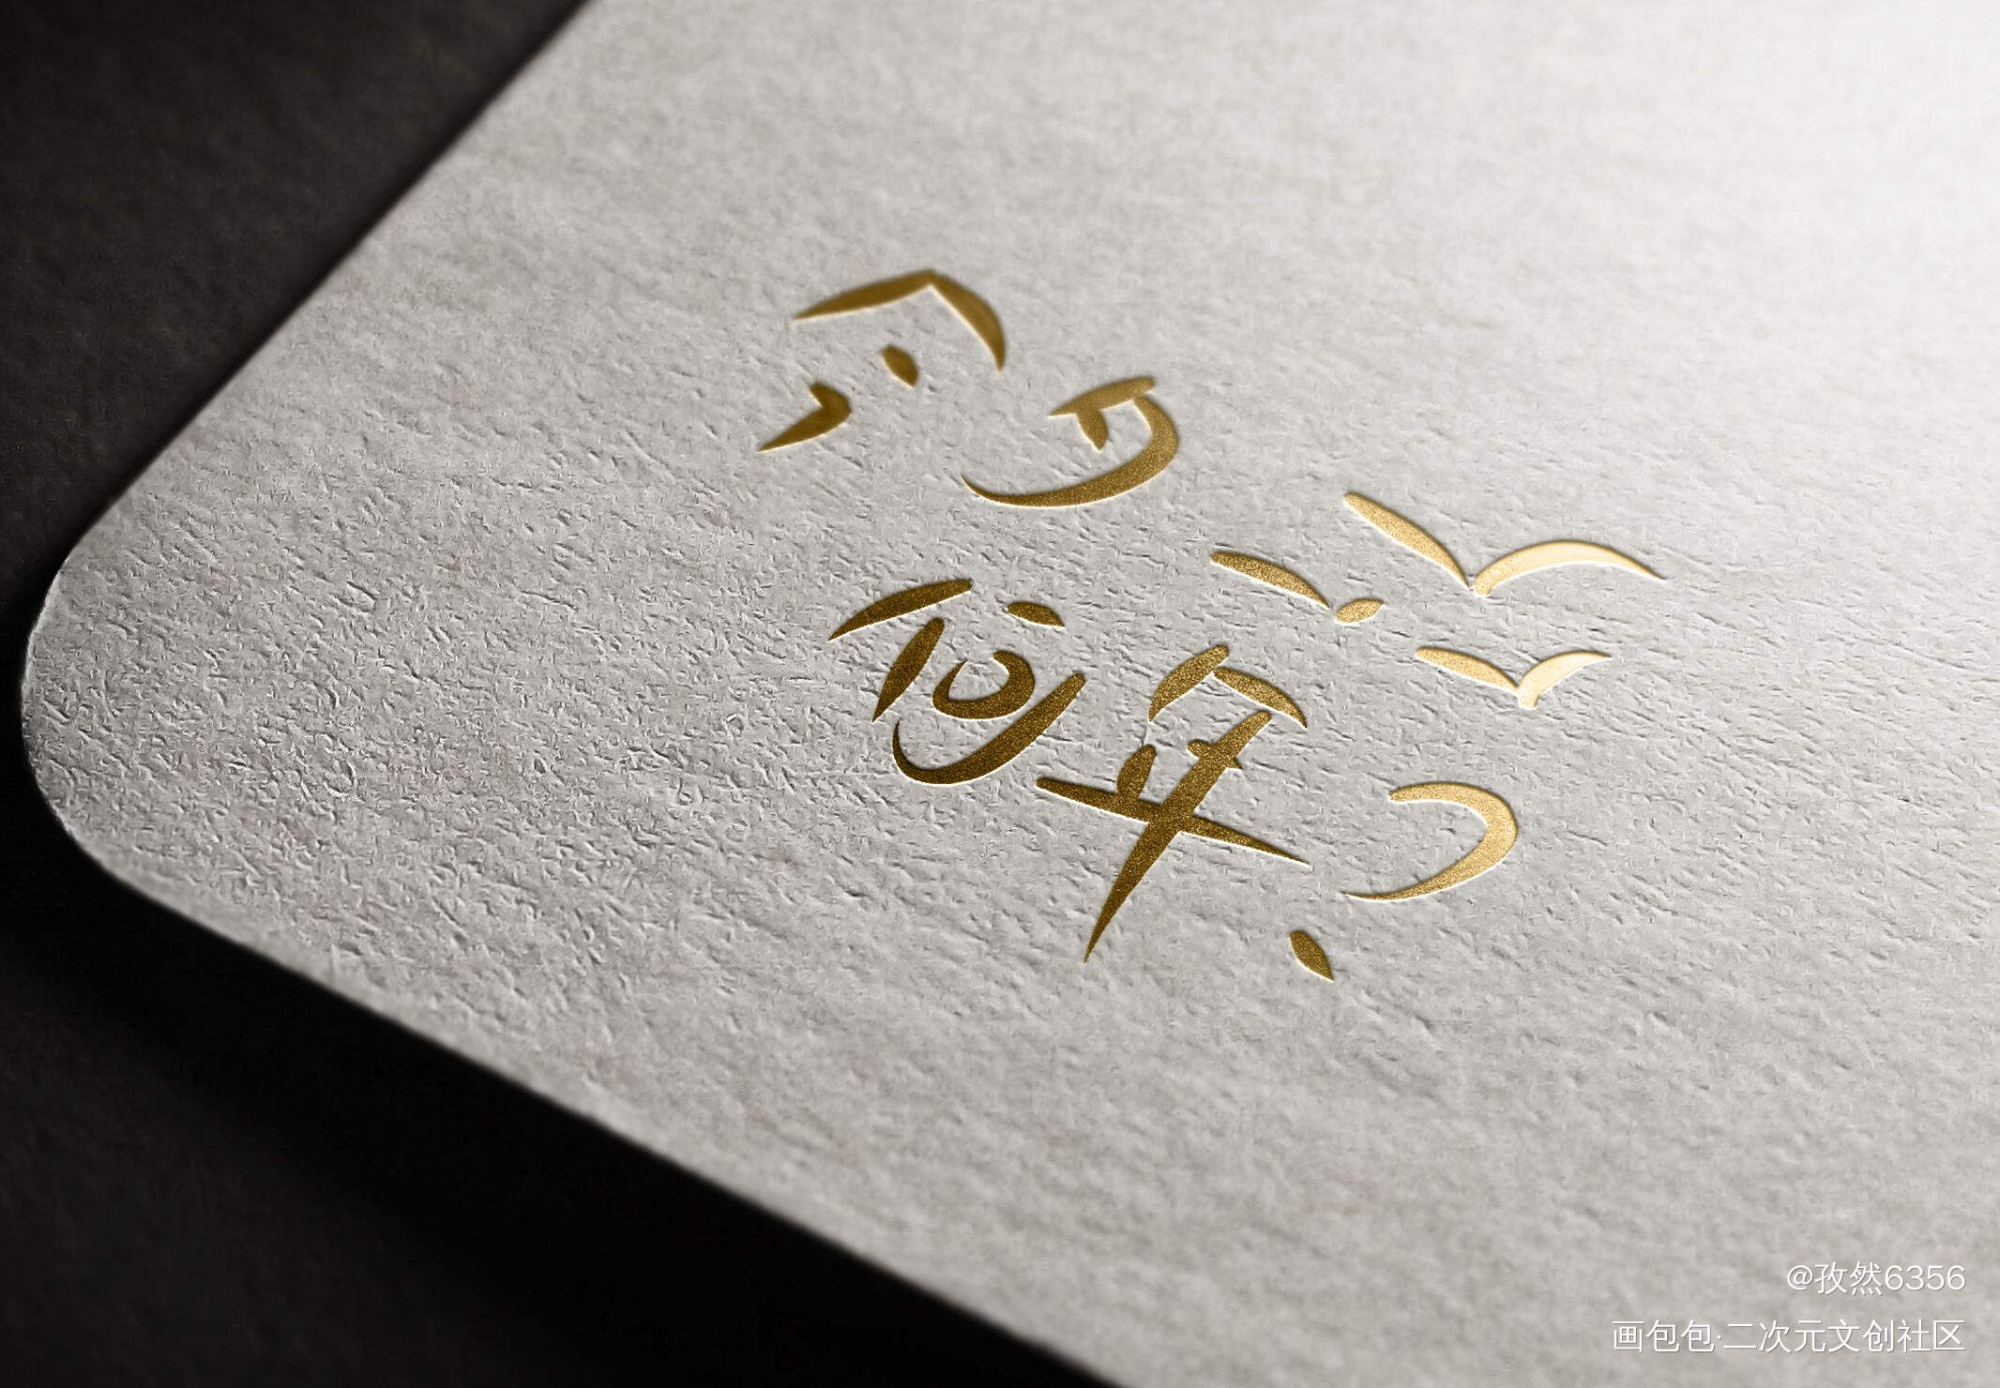 今夕
何年?
@孜然6356
画包包·二次元文创社区